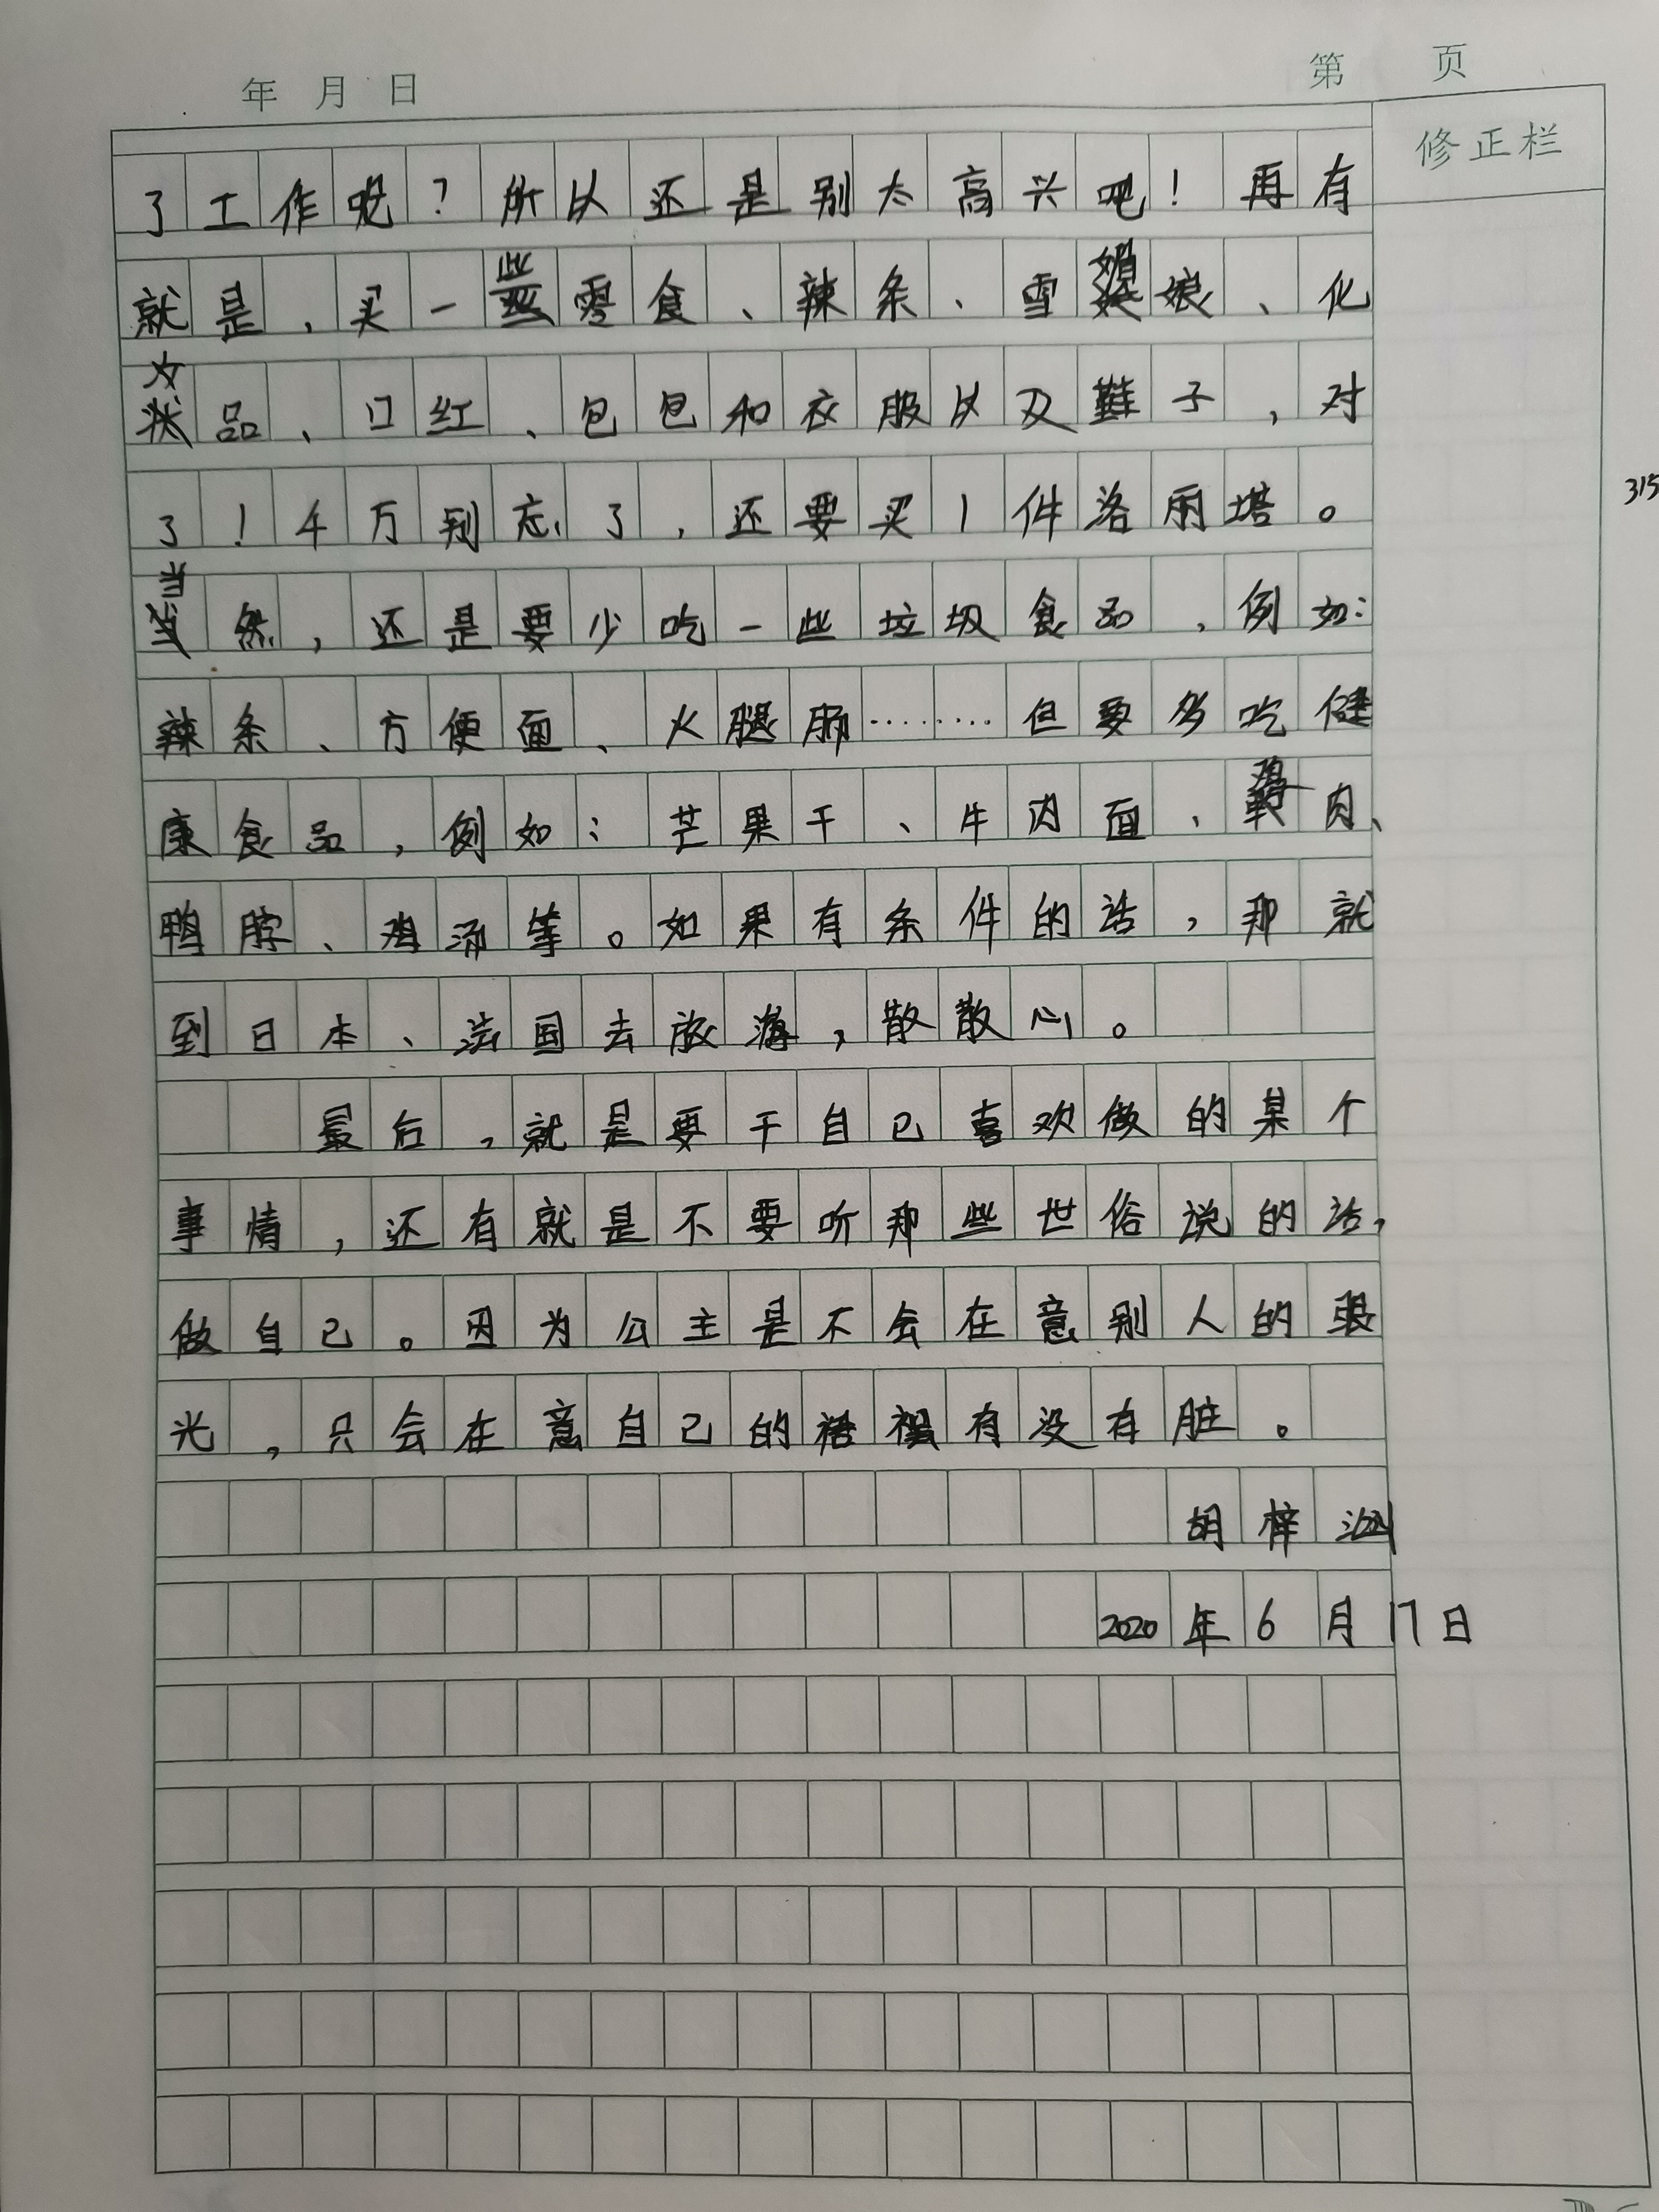 年 月 日
第 页
修正栏
了工作呢？所以还是别太高兴吧！再有
就是，买一些零食、辣条、雪媚娘、化
妆品、口红、包包和衣服以及鞋子，对
了！千万别忘了，还要买1件洛丽塔。
315
当然，还是要少吃一些垃圾食品，例如：
辣条、方便面、火腿肠………但要多吃健
康食品，例如：芒果干、牛肉面、鸡肉、
鸭脖、鸡汤等。如果有条件的话，那就
到日本、法国去放海，散散心。
最后，就是要干自己喜欢做的某个
事情，还有就是不要听那些世俗说的话，
做自己。因为公主是不会在意别人的眼
光，只会在意自己的裙有没有脏。
胡梓
2020年6月17日